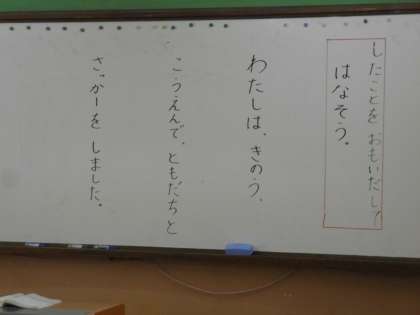 したことを おもいだして
はなそう。
わたしは、きのう、
こうえんで、ともだちと
さっかーを しました。